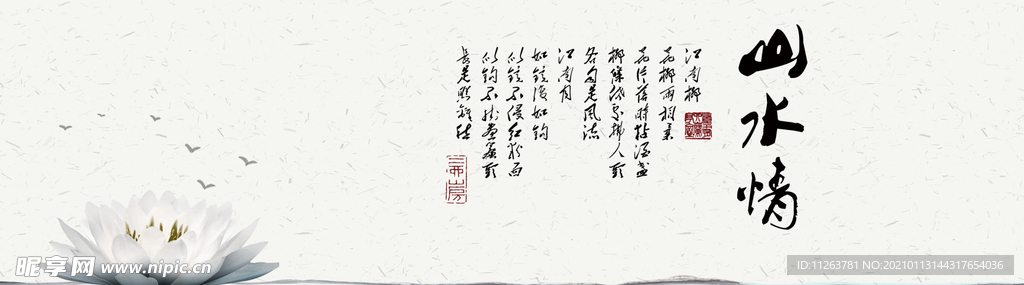 山水情
江南柳
花柳两相柔
花片落时黏酒盏
柳条低处拂人头
各自是风流
江南月
如镜复如钩
似镜不侵红粉面
似钩不挂画帘头
长是照离愁
昵享网 www.nipic.cn
ID:11263781 NO:20210113144317654036